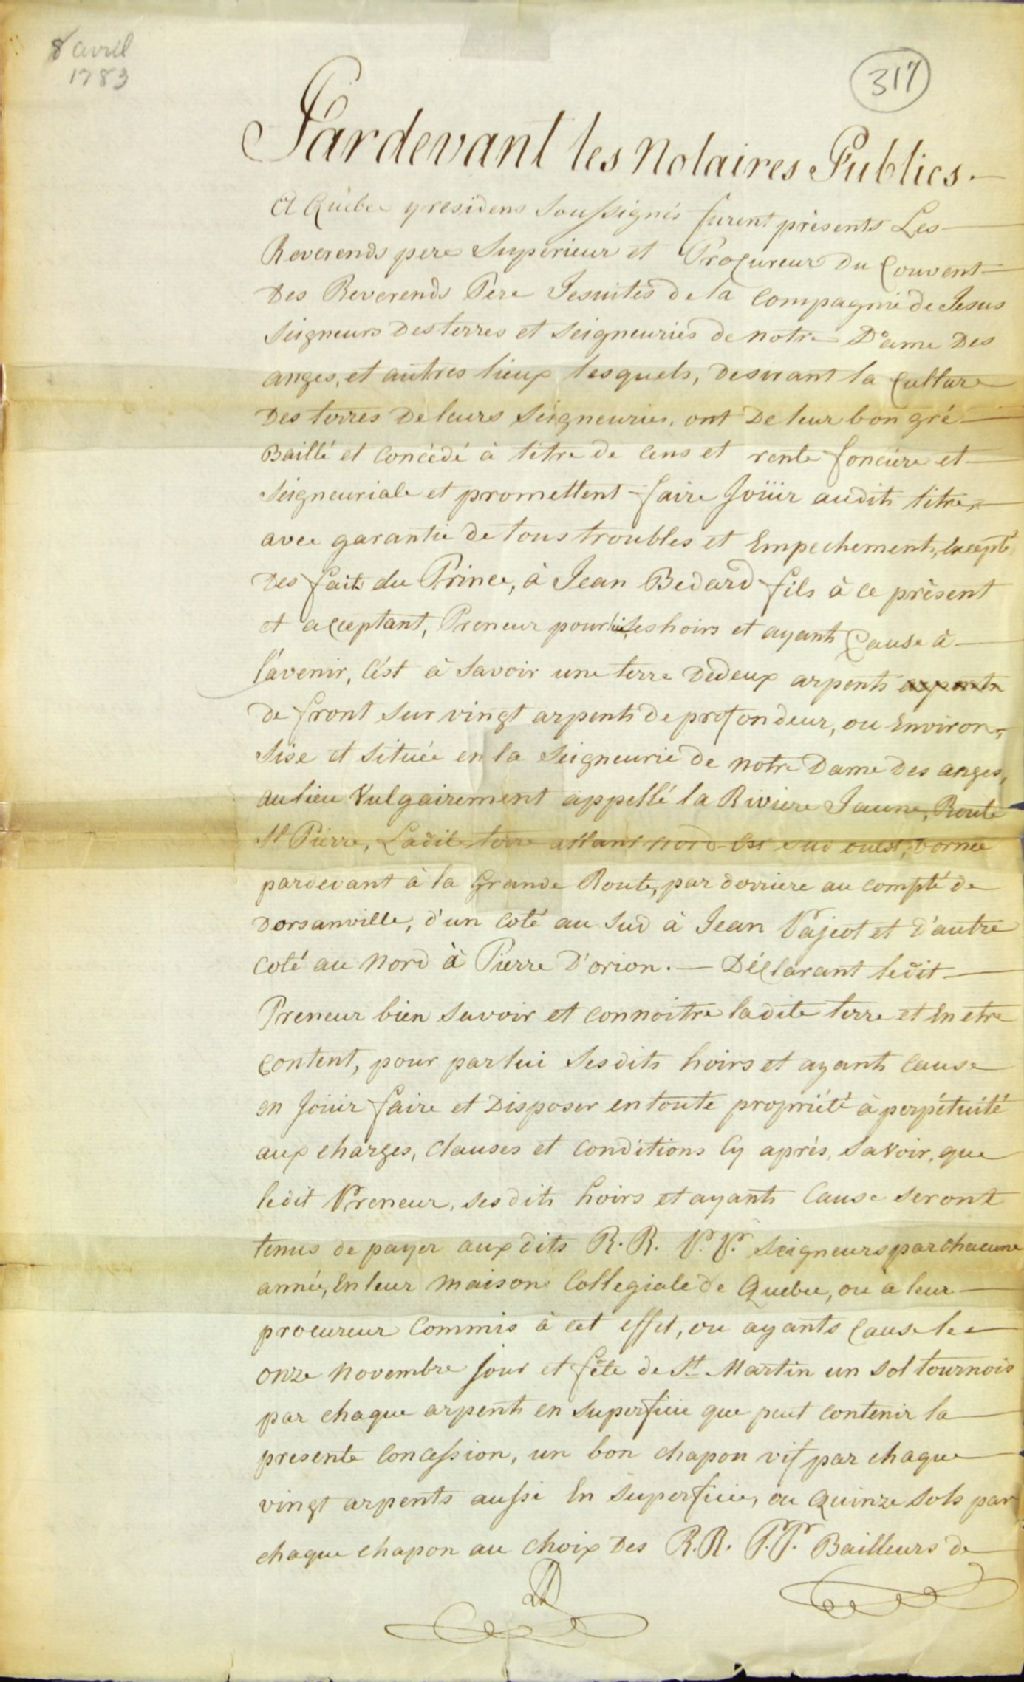 8 avril
1783
317
Pardevant les Notaires Publics.
A Québec y residens Soussignés furent présents Les
Reverends pere Superieur et Procureur Du Couvent
Des Reverends Pere Jesuites de la Compagnie de Jesus
Seigneurs Des terres et Seigneuries de notre Dame Des
anges, et autres lieux lesquels, Desirant la Culture
Des terres De leurs Seigneuries, ont De leur bon gré
Baillé et Concédé à titre de Cens et rente fonciere et
Seigneuriale et promettent faire Joüir audit titre
avec garantie de tous troubles et Empechements, Excepté
Des faits du Prince, à Jean Bedard fils à ce présent
et acceptant, Preneur pour lui ses hoirs et ayants Cause à
l'avenir, C'est à Savoir une terre De deux arpents arpents
de front sur vingt arpents de profondeur, ou Environ,
Sise et Située en la Seigneurie de Notre Dame des anges,
au lieu Vulgairement appellé la Riviere Jaune, Route
St Pierre, Ladite terre allant nord Est sud ouest, Bornée
pardevant à la Grande Route, par derriere au compté de
Dorsanville, d'un coté au Sud à Jean Pajeot et d'autre
coté au Nord à Pierre D'orion. Déclarant ledit
Preneur bien Savoir et connoitre ladite terre et En etre
Content, pour par lui Sesdits hoirs et ayants cause
en Joüir faire et Disposer en toute propriété à perpétuité
aux charges, Clauses et Conditions Cy après, Savoir, que
ledit Preneur, ses dits hoirs et ayants Cause seront
tenus de payer aux dits R.R. P.P. Seigneurs par chacune
année, En leur Maison Collegiale de Quebec, ou à leur
procureur Commis à cet effet, ou ayants Cause le
onze Novembre Jour et fête de St. Martin un Sol tournois
par chaque arpents en Superficie que peut Contenir la
presente Concession, un bon chapon vif par chaque
vingt arpents aussi En Superficie, ou Quinze Sols par
chaque chapon au Choix Des R.R. P.P. Bailleurs de